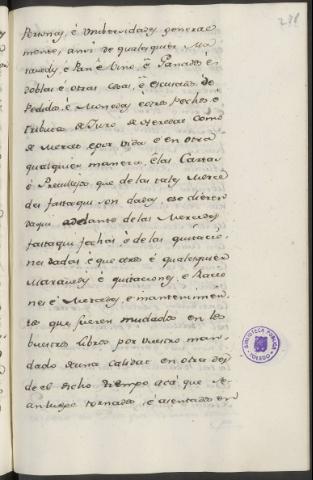 231
Personas, é Universidades general
mente, ansi de qualesquier Ma
ravedis, é Pan é Vino, é Ganados é
doblas é otras cosas, é escusados de
Pedidos, é Monedas é otros Pechos é
tributos de Juro de Heredad como
de Merced, é por vida é en otra
qualquier manera, é las Cartas
é Previlejos que de las tales Merce
des fasta aqui son dadas, é se dieren
de aqui adelante de las Mercedes
fasta qui fechas ó de las quitacio
nes dadas é que otros é qualesquier
Maravedis é quitaciones, é Racio
nes é Mercedes, é mantenimien
tos que fueren mudados en los
vuestros libros por vuestro man
dado de una calidad en otra des
de el dicho tiempo acá que se
an tornados, é asentados en
BIBLIOTECA PUBLICA
TOLEDO